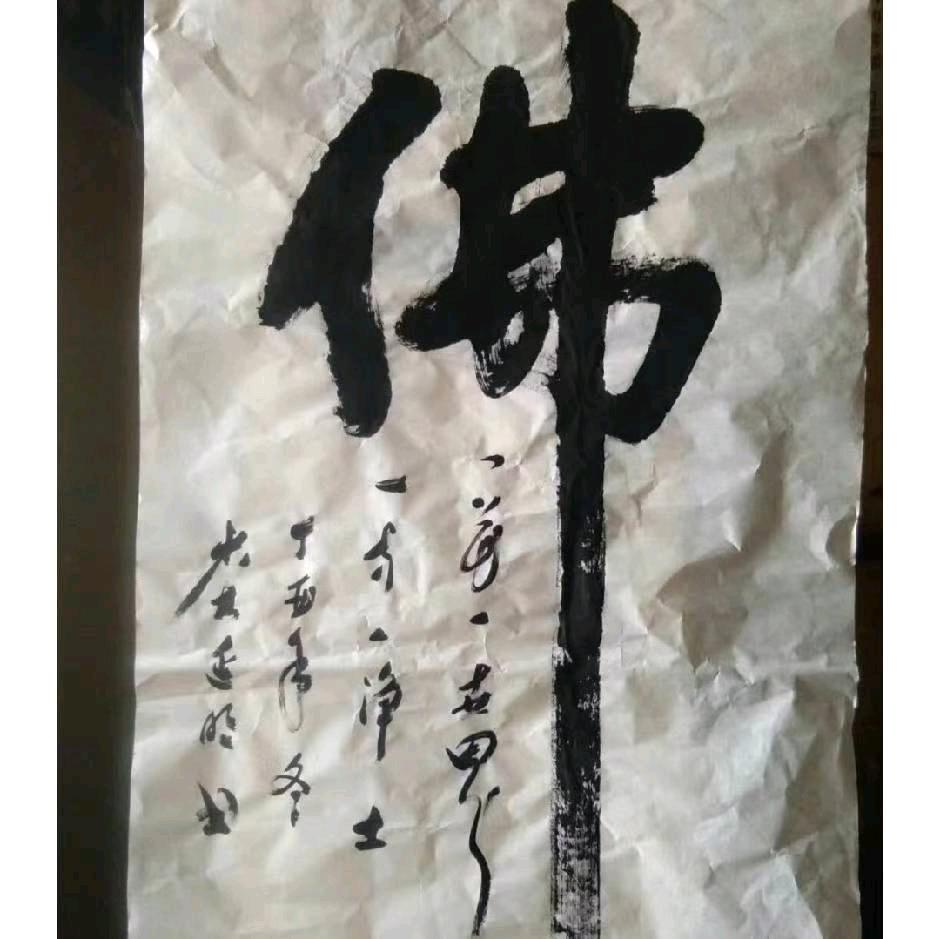 佛
一花一世界
一方一净土
丁酉年冬
延明书